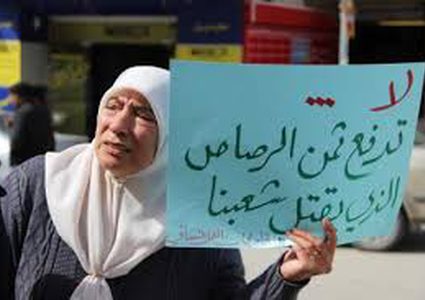 لا ...
تدفع ثمن الرصاص
الذي يقتل شعبنا